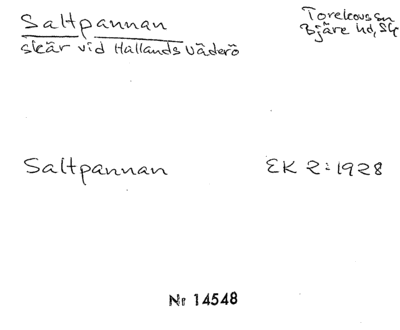 Saltpannan
skär vid Hallands Väderö
Torekovs sn
Bjäre hd, Sk
Saltpannan
EK 2:1928
Nr 14548